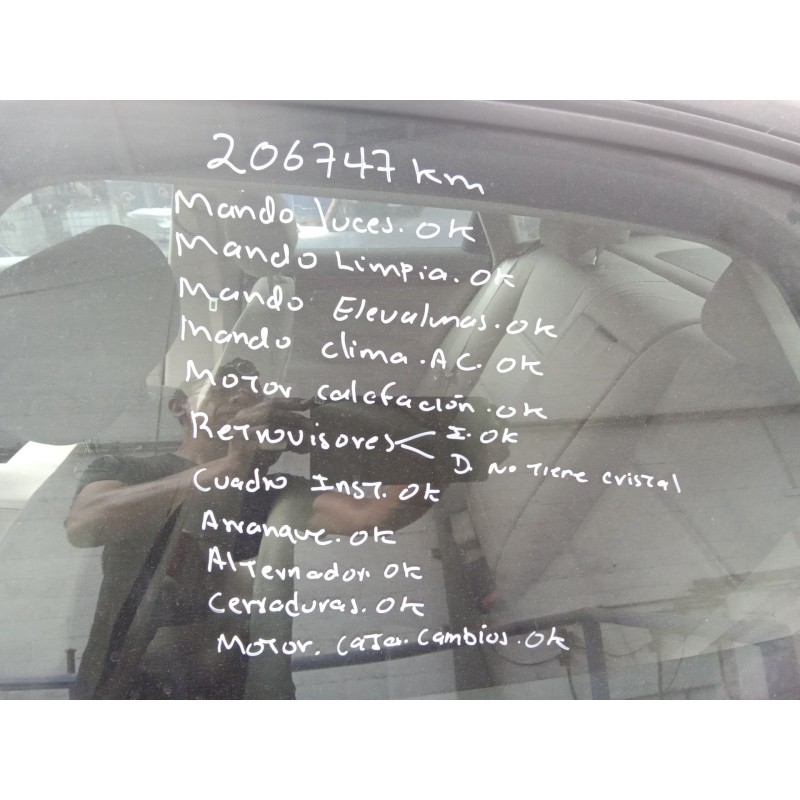 206747 km
Mando luces. OK
Mando Limpia. OK
Mando Elevalunas. OK
Mando clima. A.C. OK
Motor calefación. OK
Retrovisores I. OK
D. No Tiene cristal
Cuadro Inst. OK
Arranque. OK
Alternador. OK
Cerraduras. OK
Motor. Caja. Cambios. OK